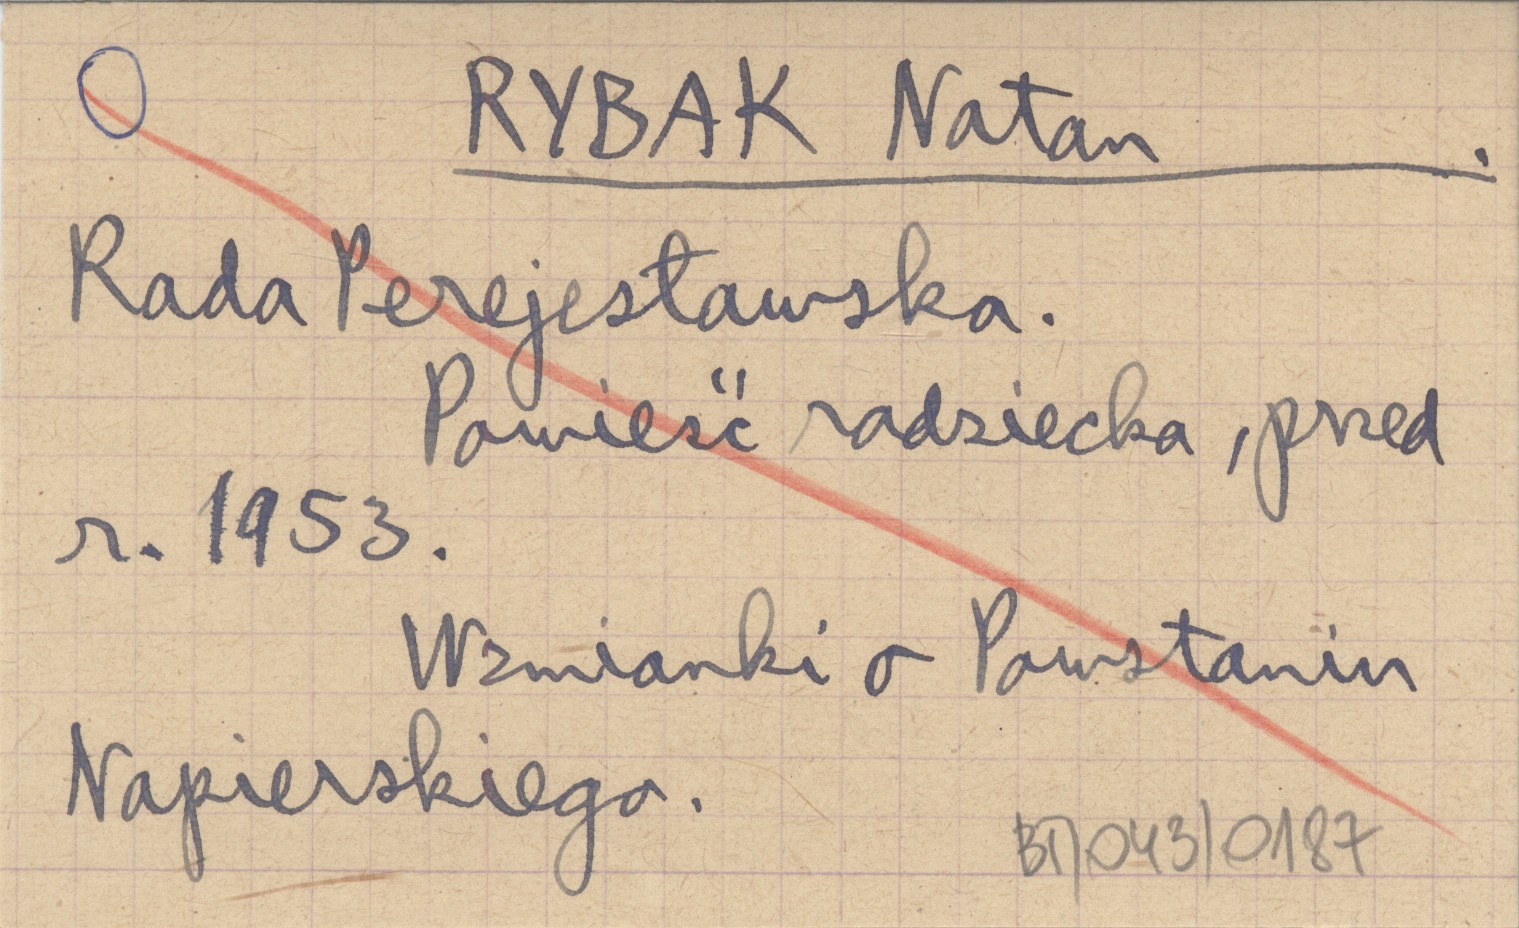 RYBAK Natan.
Rada Perejesławska.
Powieść radziecka, przed
r. 1953.
Wzmianki o Powstaniu
Napierskiego.
BT/043/0187